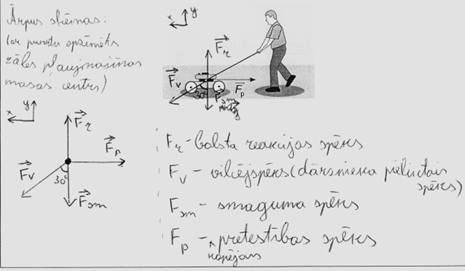 Ārpus shēmas:
(ar punktu apzīmēts
zāles pļaujmašīnas
masas centrs)
x y
F_r
F_v
F_p
30°
F_sm
x y
F_r
F_v
F_p
30°
F_sm
F_r - balsta reakcijas spēks
F_v - vilcējspēks (dārznieka pieliktais
spēks)
F_sm - smaguma spēks
F_p - pretestības spēks
kopējais